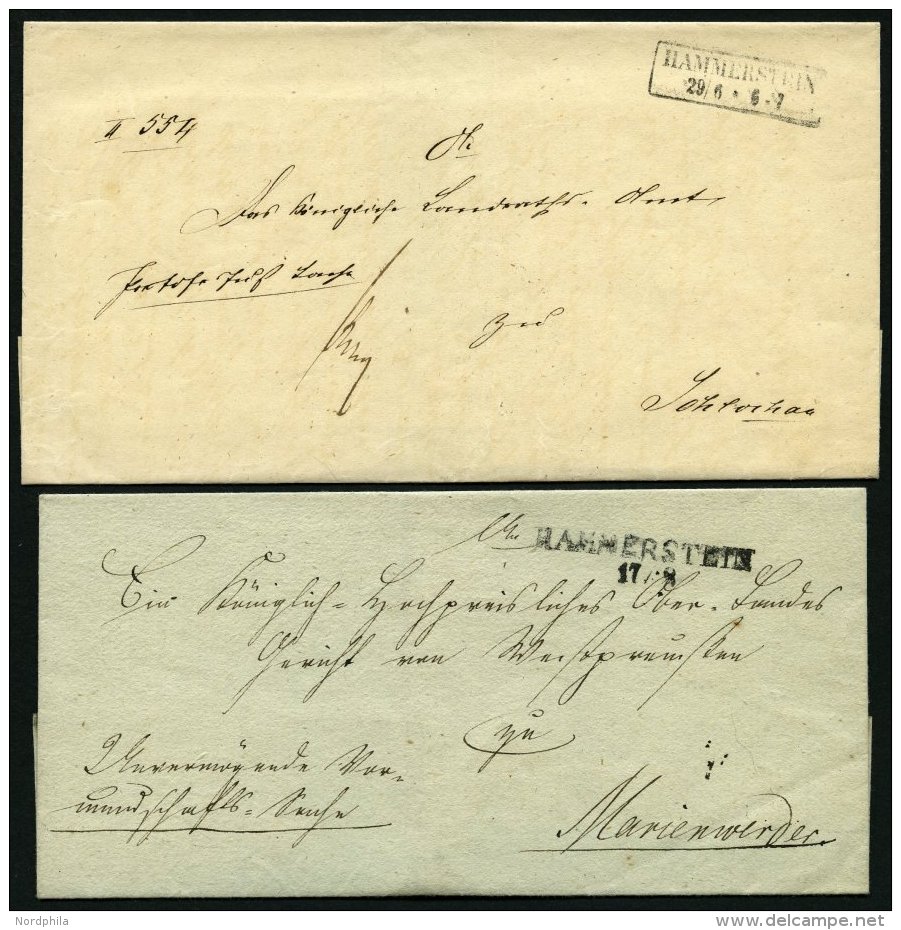 HAMMERSTEIN
29/6 * 6-7
II 554
An
Das Königliche Landraths-Amt
zu
Schlochau
HAMMERSTEIN
17/8
An
Ein Königlich-Hochpreisliches Ober-Landes
Gericht von Westpreussen
zu
Unvermögende Vor-
mundschafts-Sache
Marienwerder.
Nordphila
delcampe.net